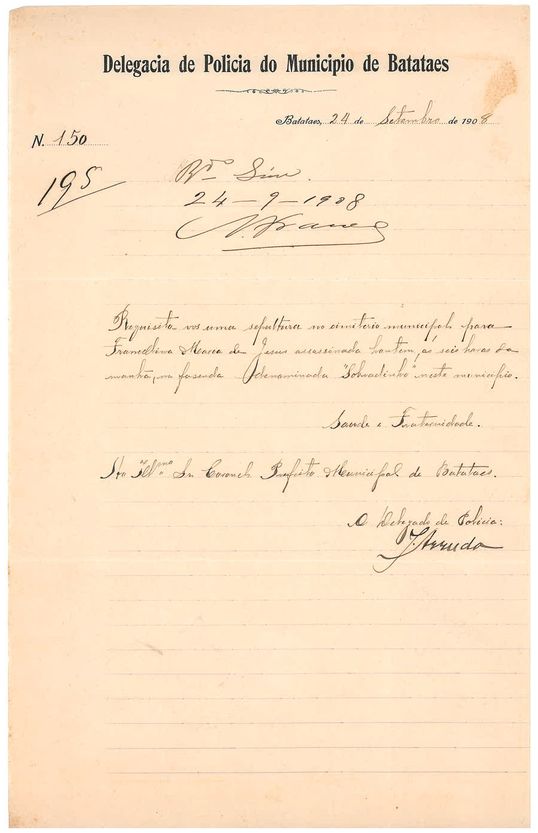 Delegacia de Policia do Municipio de Batataes
Batataes, 24 de Setembro de 1908
N. 150
195
Sim.
24-9-1908
Requisito vos uma sepultura no cimiterio municipal para
Francelina Maria de Jesus assassinada hontem, ás seis horas da
manhã, na fazenda denominada "Sobradinho" neste municipio.
Saude e Fraternidade.
Sr. Coronel Prefeito Municipal de Batataes.
O Delegado de Policia:
J Arruda